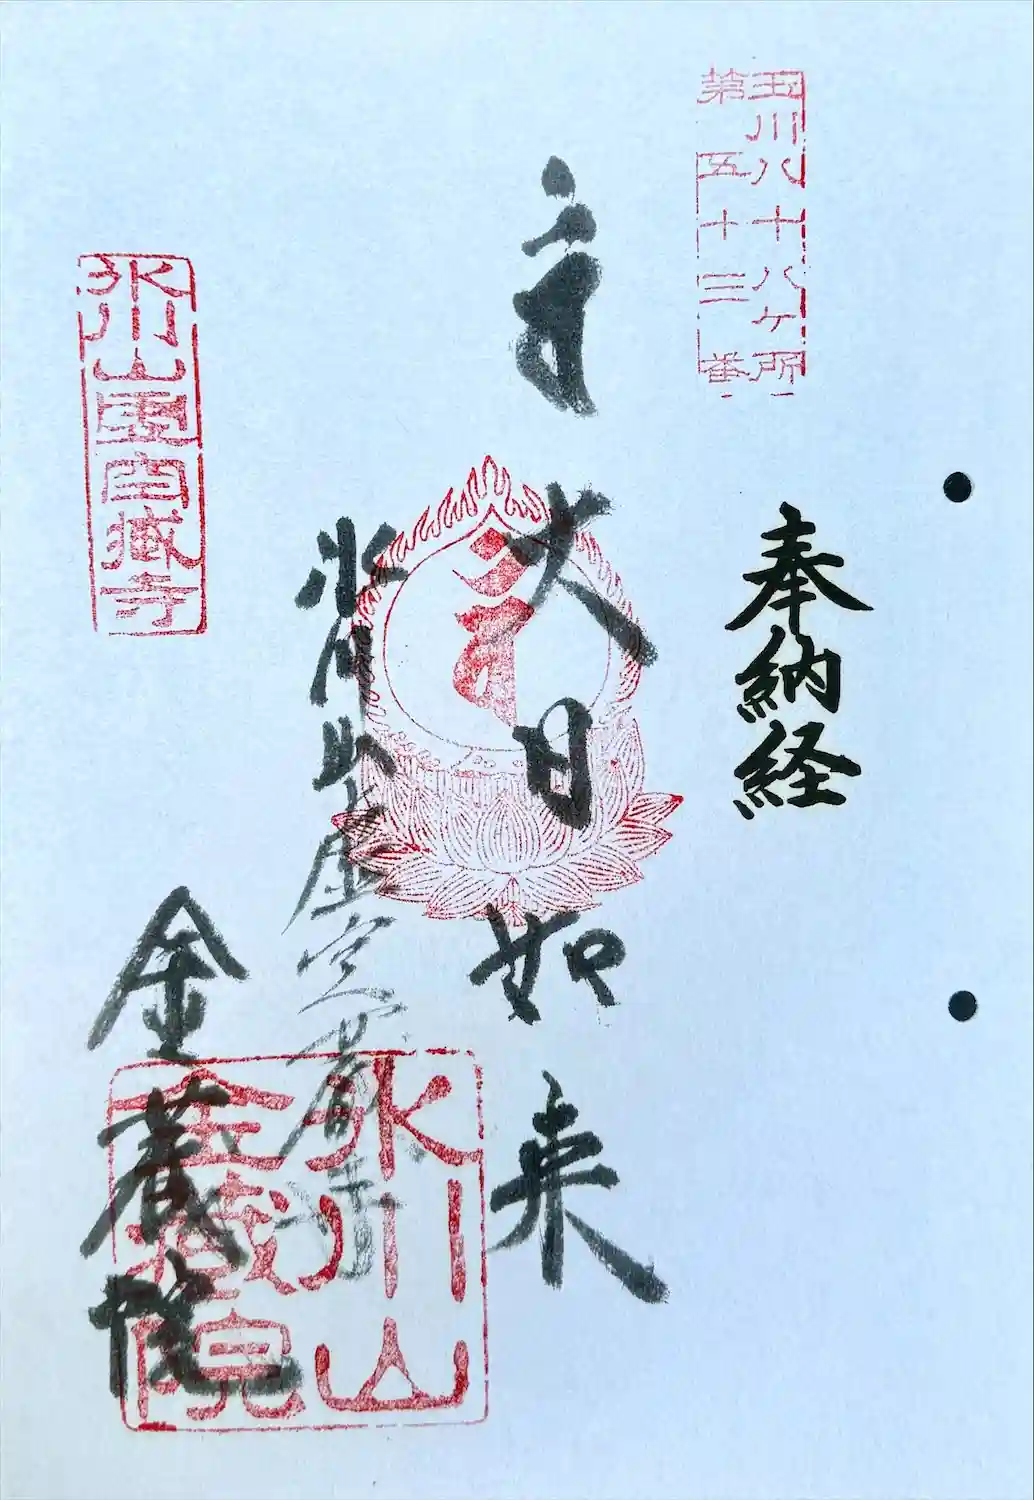 玉川八十八ヶ所
第五十三番
奉納経
大日如来
氷川山虚空蔵寺
金蔵院
氷川山
金蔵院
氷川山
虚空蔵寺